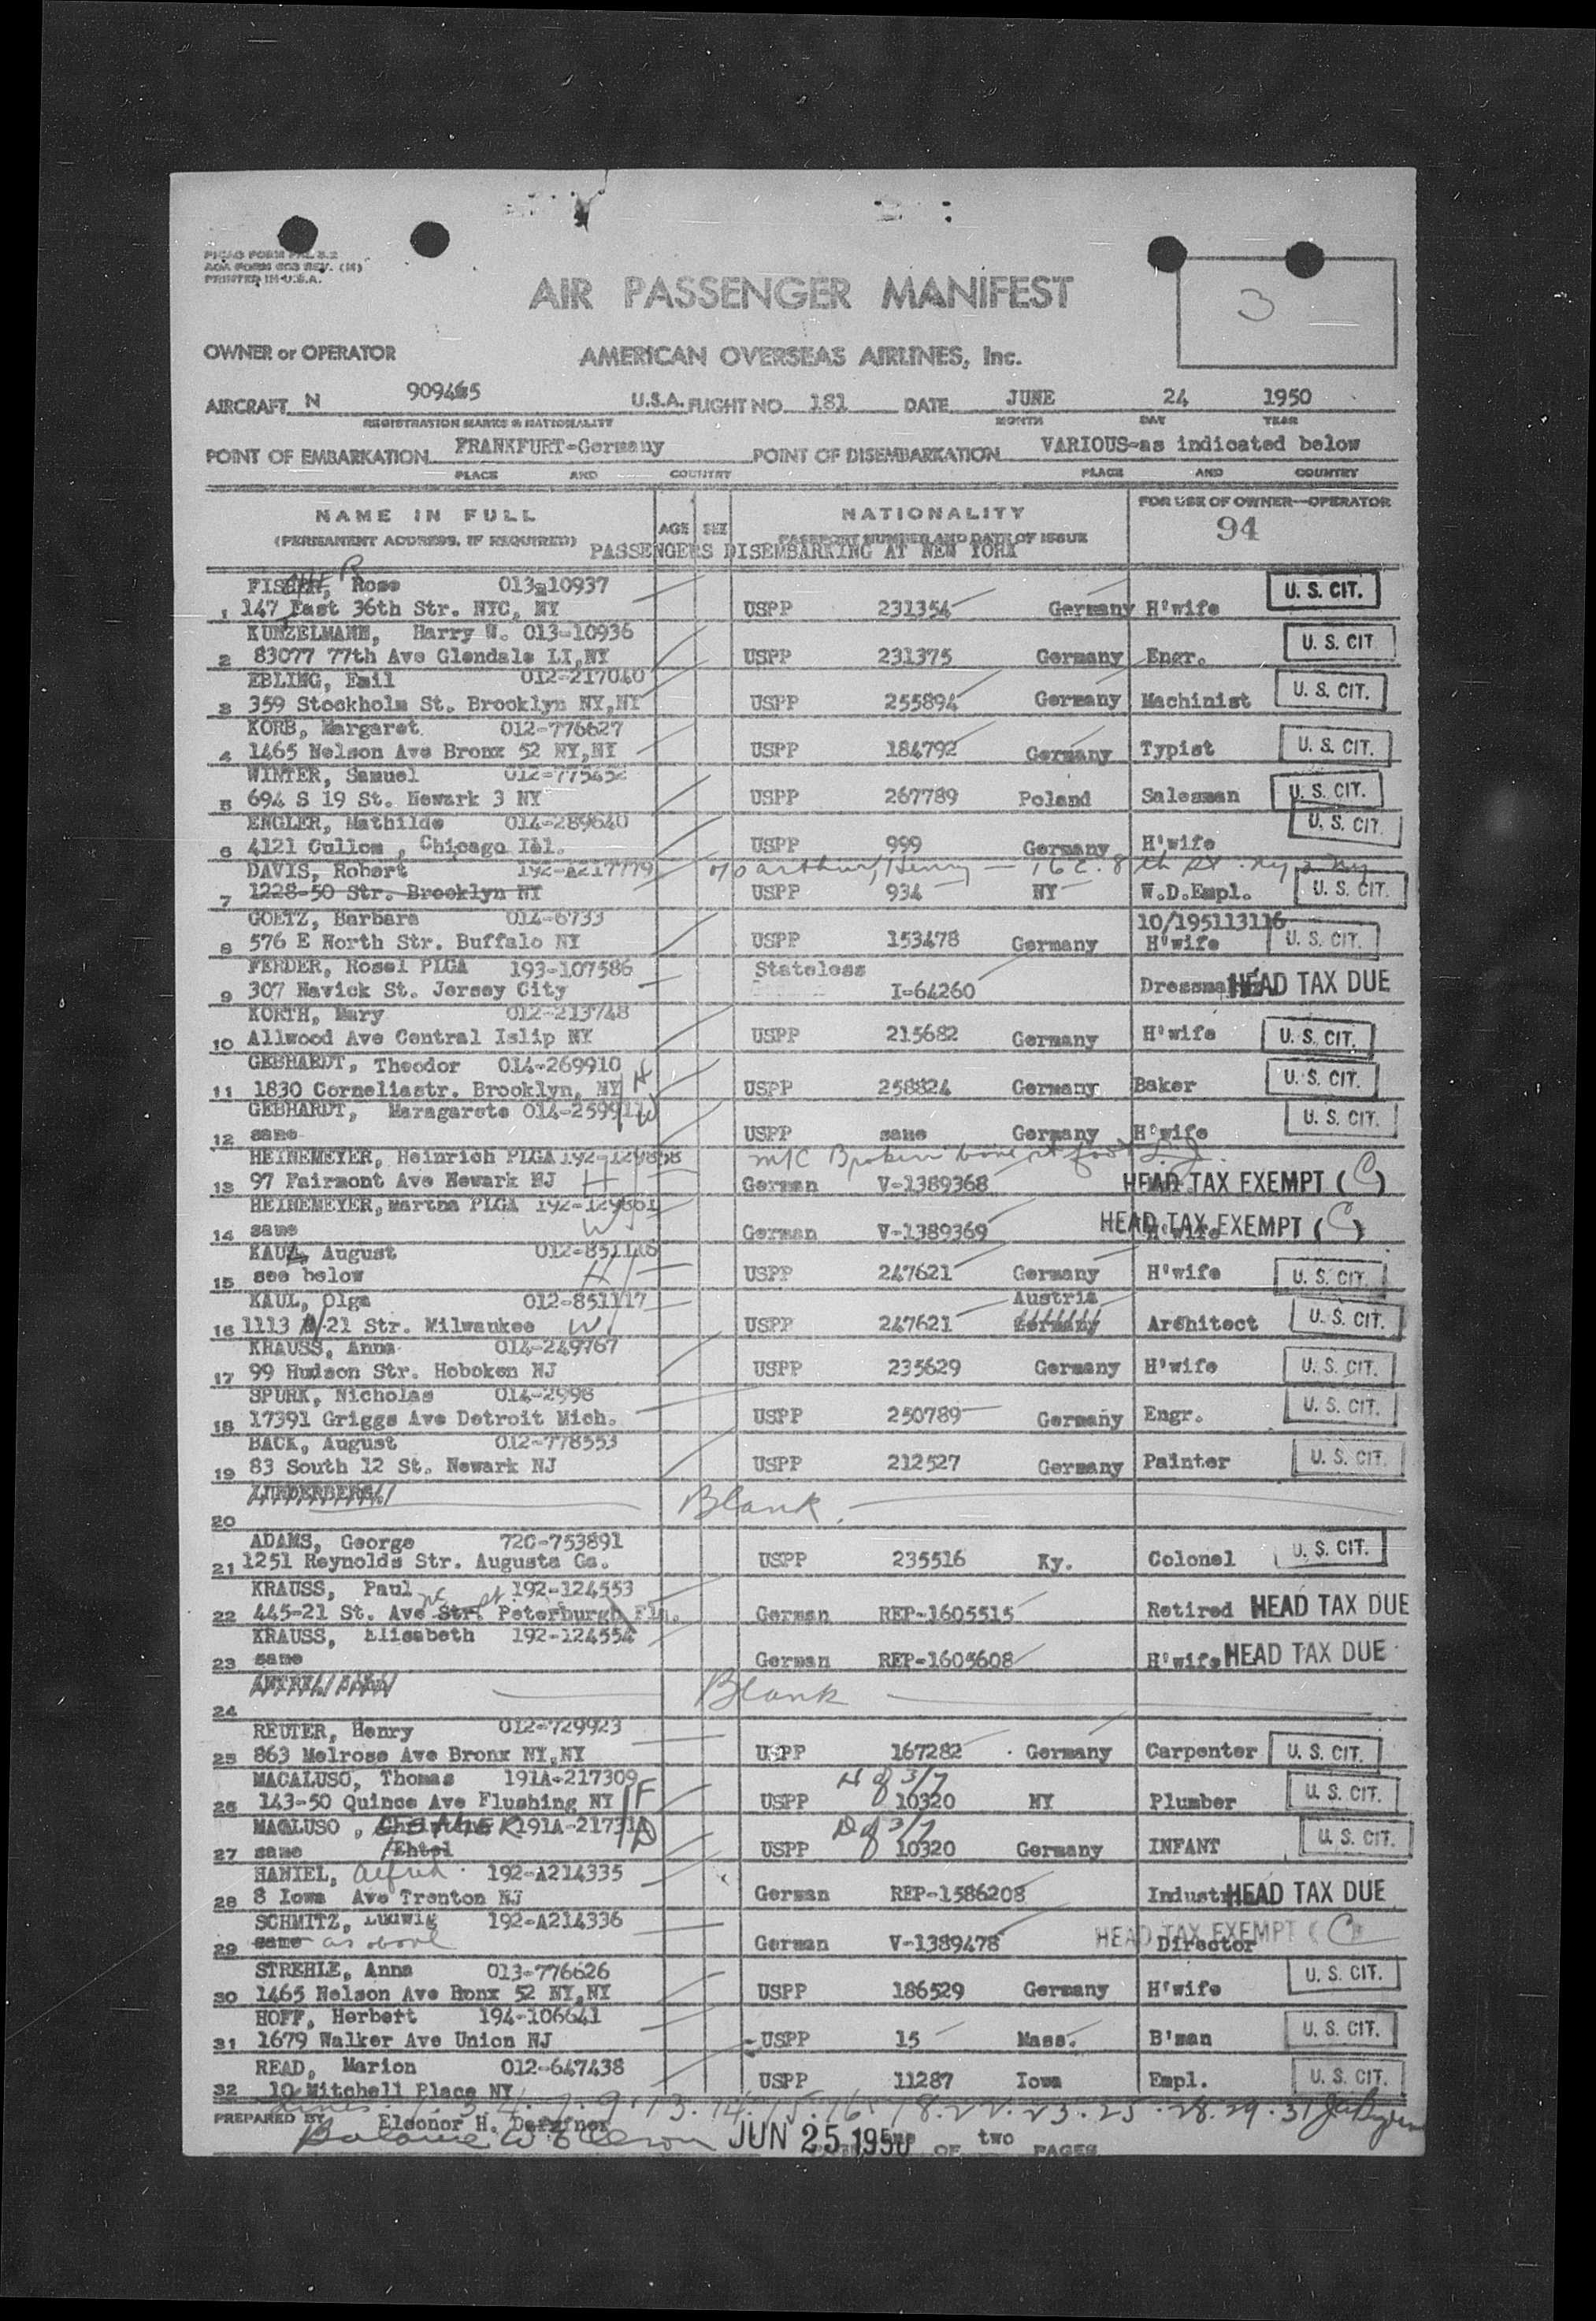 PICAO FORM PAL 3.2
AOA FORM 603 REV. (M)
PRINTED IN U.S.A.
AIR PASSENGER MANIFEST
3
OWNER or OPERATOR AMERICAN OVERSEAS AIRLINES, Inc.
AIRCRAFT N 909465 U.S.A. FLIGHT NO. 181 DATE JUNE 24 1950
REGISTRATION MARKS & NATIONALITY MONTH DAY YEAR
POINT OF EMBARKATION FRANKFURT-Germany POINT OF DISEMBARKATION VARIOUS-as indicated below
PLACE AND COUNTRY PLACE AND COUNTRY
NAME IN FULL AGE SEX NATIONALITY FOR USE OF OWNER—OPERATOR
(PERMANENT ADDRESS, IF REQUIRED) PASSPORT NUMBER AND DATE OF ISSUE 94
PASSENGERS DISEMBARKING AT NEW YORK
Rose 013-10937 U. S. CIT.
1 147 East 36th Str. NYC, NY USPP 231354 Germany H'wife
KUNZELMANN, Harry W. 013-10936 U. S. CIT
2 83077 77th Ave Glendale LI,NY USPP 231375 Germany Engr.
EBLING, Emil 012-217040 U. S. CIT.
3 359 Stockholm St. Brooklyn NY,NY USPP 255894 Germany Machinist
KORB, Margaret 012-776627 U. S. CIT.
4 1465 Nelson Ave Bronx 52 NY,NY USPP 184792 Germany Typist
WINTER, Samuel 012-775452
5 694 S 19 St. Newark 3 NY USPP 267789 Poland Salesman U. S. CIT.
ENGLER, Mathilde 014-289640 U. S. CIT.
6 4121 Cullom , Chicago Ill. USPP 999 Germany H'wife
DAVIS, Robert 192-A217779 c/o Arthur, Henry - 16 E. 8th St. Ny 3 Ny
7 1228-50 Str. Brooklyn NY USPP 934 NY W.D.Empl. U. S. CIT.
GOETZ, Barbara 014-6733 10/195113116
8 576 E North Str. Buffalo NY USPP 153478 Germany H'wife U. S. CIT.
FERDER, Rosel PLGA 193-107586 Stateless
9 307 Navick St. Jersey City I-64260 HEAD TAX DUE
KORTH, Mary 012-213748
10 Allwood Ave Central Islip NY USPP 215682 Germany H'wife U. S. CIT.
GEBHARDT, Theodor 014-269910 H U. S. CIT.
11 1830 Corneliastr. Brooklyn, NY USPP 258824 Germany Baker
GEBHARDT, Maragarete W U. S. CIT.
12 same USPP same Germany H'wife
HEINEMEYER, Heinrich PLGA 192-129858 m/c Broken bone rt foot
13 97 Fairmont Ave Newark NJ H German V-1389368 HEAD TAX EXEMPT (C)
HEINEMEYER, Martha PLGA 192-129861
14 same W German V-1389369 H'wife HEAD TAX EXEMPT (C)
KAUL, August
15 see below H USPP 247621 Germany H'wife U. S. CIT.
KAUL, Olga 012-851117 Austria
16 1113 21 Str. Milwaukee W USPP 247621 Germany Architect U. S. CIT.
KRAUSS, Anna 014-249767
17 99 Hudson Str. Hoboken NJ USPP 235629 Germany H'wife U. S. CIT.
SPURK, Nicholas 014-2998 U. S. CIT.
18 17391 Griggs Ave Detroit Mich. USPP 250789 Germany Engr.
BACK, August 012-778553
19 83 South 12 St. Newark NJ USPP 212527 Germany Painter U. S. CIT.
Blank.
20
ADAMS, George 720-753891 U. S. CIT.
21 1251 Reynolds Str. Augusta Ga. USPP 235516 Ky. Colonel
KRAUSS, Paul 192-124553
22 445-21 St. Ave Str. Peterburgh Fla. German REP-1605515 Retired HEAD TAX DUE
KRAUSS, Elisabeth 192-124554
23 same German REP-1605608 H'wife HEAD TAX DUE
Blank
24
REUTER, Henry 012-729923
25 863 Melrose Ave Bronx NY,NY USPP 167282 Germany Carpenter U. S. CIT.
MACALUSO, Thomas 191A-217309 H of 3/7
26 143-50 Quince Ave Flushing NY F USPP 10320 NY Plumber U. S. CIT.
MACLUSO , D of 3/7 U. S. CIT.
27 same D USPP 10320 Germany INFANT
HANIEL, Alfred 192-A214335
28 8 Iowa Ave Trenton NJ German REP-1586208 HEAD TAX DUE
SCHMITZ, Ludwig 192-A214336
29 same as above German V-1389478 Director HEAD TAX EXEMPT (C
STREHLE, Anna 013-776626 U. S. CIT.
30 1465 Nelson Ave Bonx 52 NY,NY USPP 186529 Germany H'wife
HOFF, Herbert 194-106641
31 1679 Walker Ave Union NJ USPP 15 Mass. B'man U. S. CIT.
READ, Marion 012-647438
32 10 Mitchell Place NY USPP 11287 Iowa Empl. U. S. CIT.
PREPARED BY Eleonor H.
JUN 25 1950 OF two PAGES